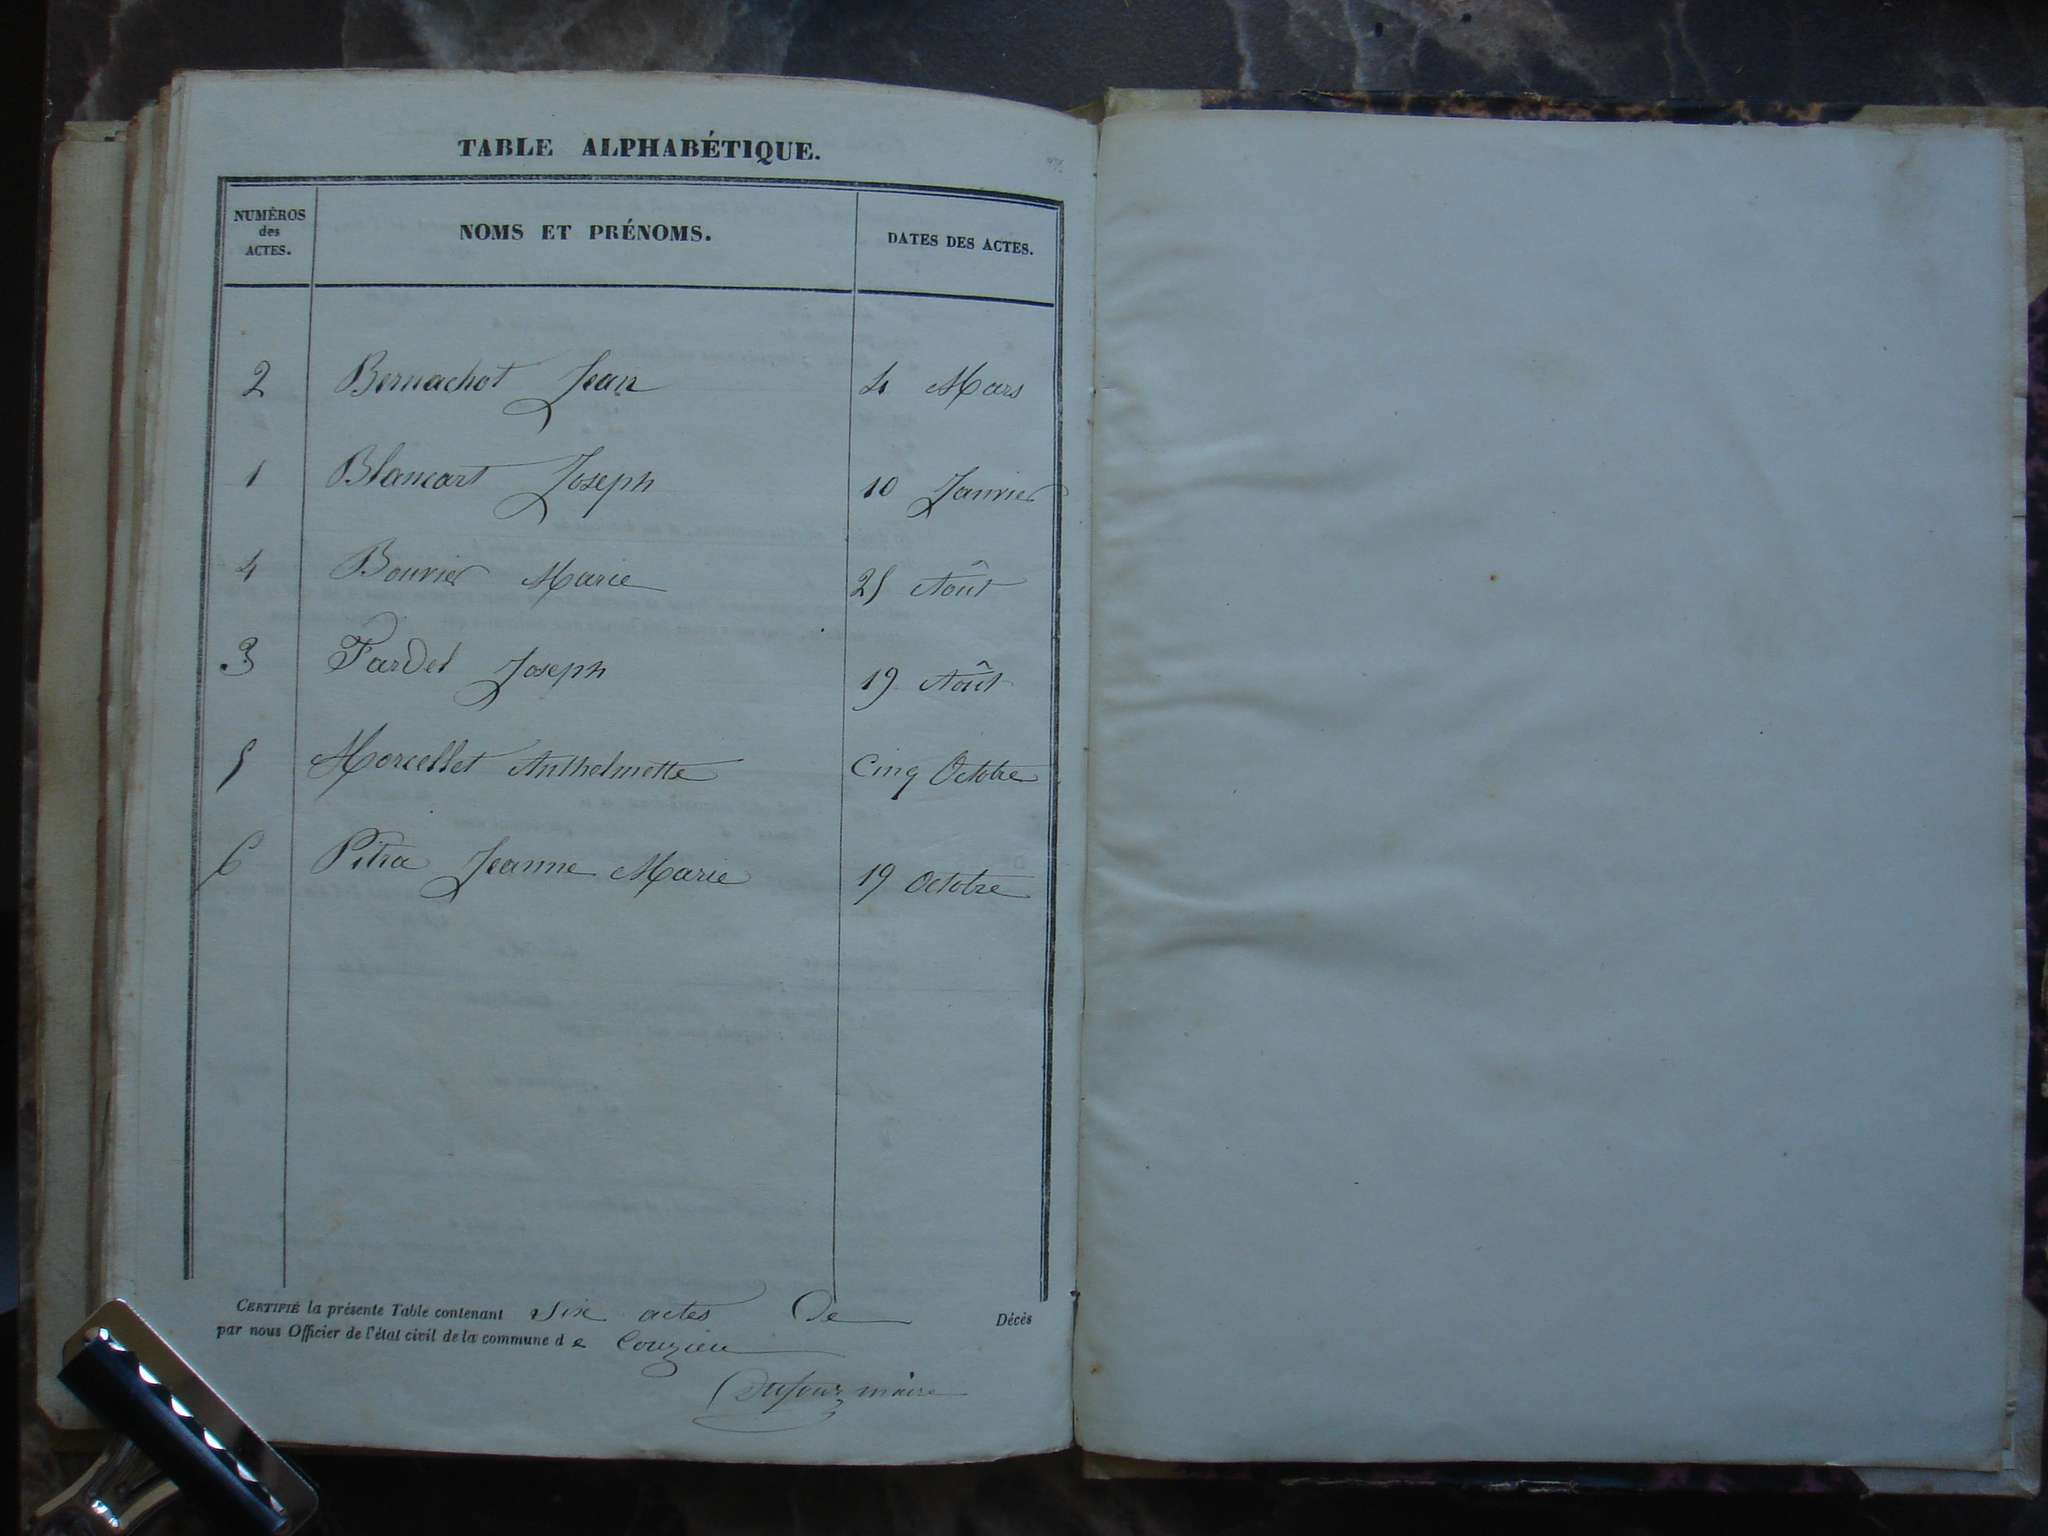 TABLE ALPHABÉTIQUE.
NUMÉROS des ACTES. NOMS ET PRÉNOMS. DATES DES ACTES.
2 Bernachot Jean 4 Mars
1 Blancart Joseph 10 Janvier
4 Bouvier Marie 25 Août
3 Fardel Joseph 19 Août
5 Morcellet Anthelmette Cinq Octobre
6 Pitra Jeanne Marie 19 Octobre
CERTIFIÉ la présente Table contenant Six actes De Décès
par nous Officier de l'état civil de la commune de Couzieu
Dufour maire